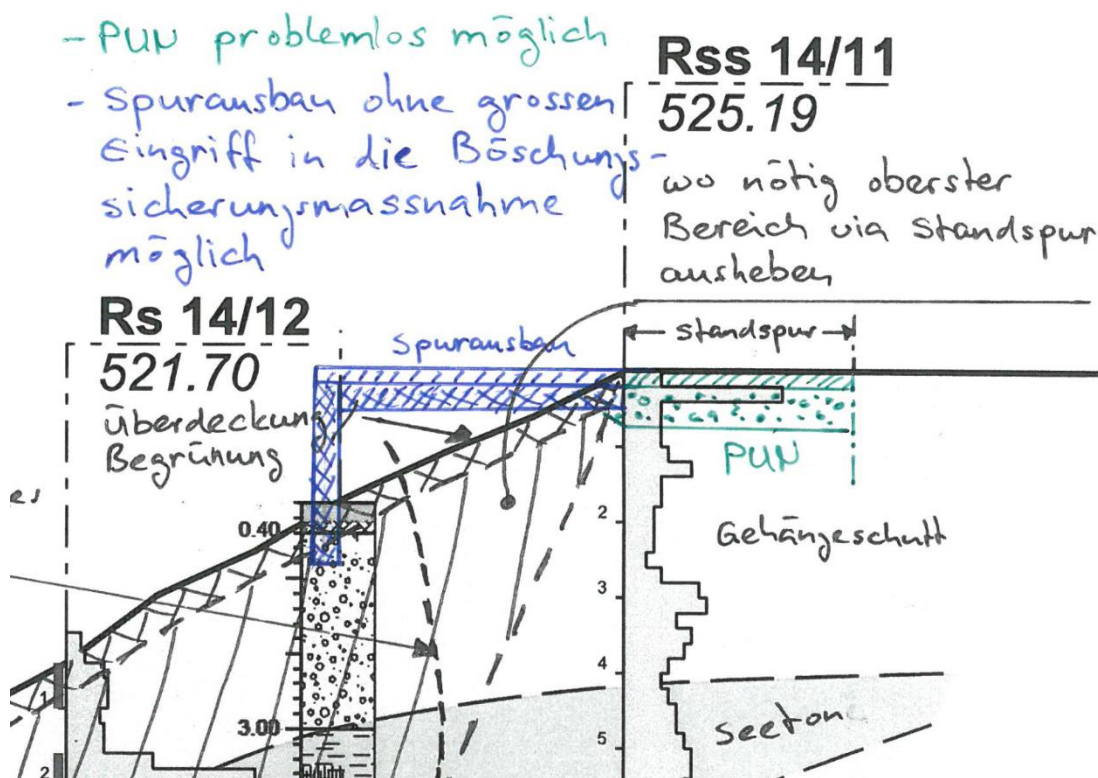 - PUN problemlos möglich
- Spurausbau ohne grossen
Eingriff in die Böschungs-
sicherungsmassnahme
möglich
Rss 14/11
525.19
wo nötig oberster
Bereich via Standspur
ausheben
Rs 14/12
521.70
Überdeckung
Begrünung
Spurausbau
Standspur
PUN
es
0.40
3.00
Gehängeschutt
Seeton
2
3
4
5
1
2